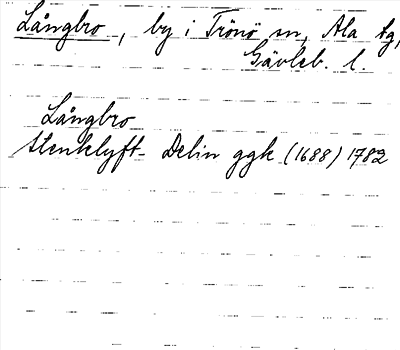 Långbro, by i Trönö sn, Ala tg,
Gävleb. l.
Långbro
Stenklyft- Delin ggk (1688) 1782